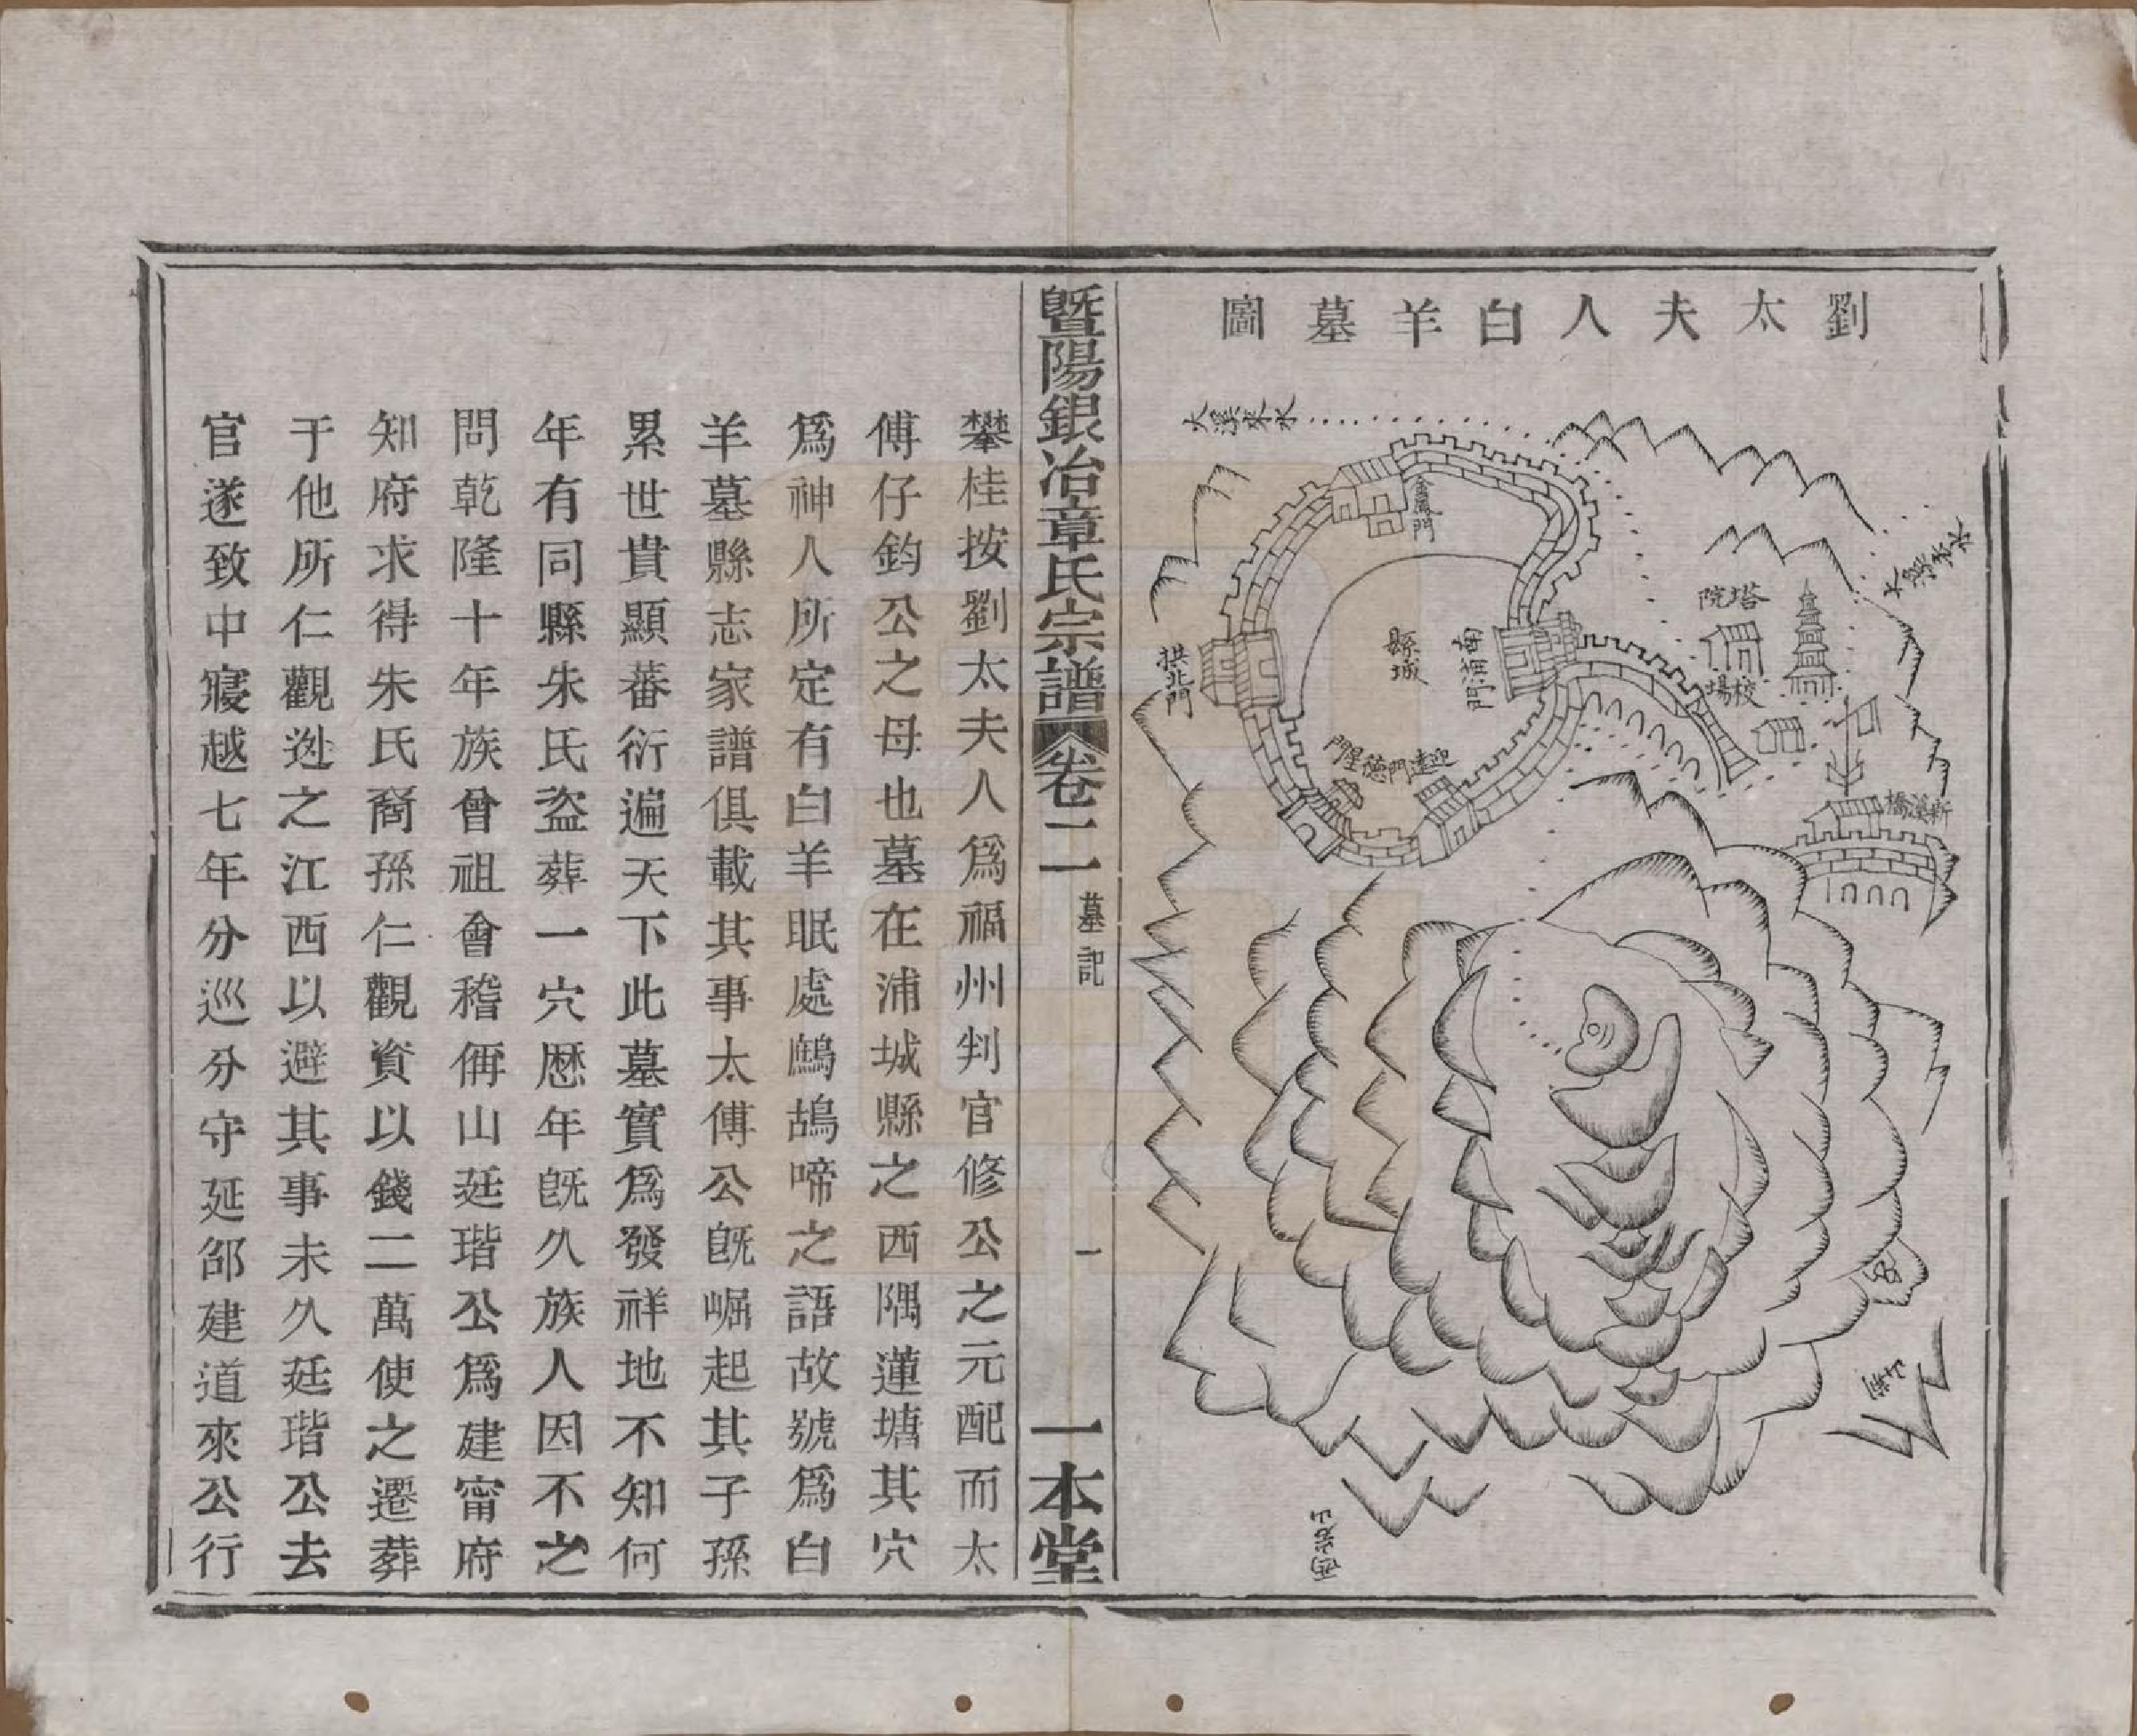 劉太夫人白羊墓圖
大溪來水
金鳳門
大溪去水
塔院
校場
縣城
南浦門
拱北門
迎遠門
德星門
新溪橋
西岩山
暨陽銀冶章氏宗譜
卷二
墓記
一
一本堂
攀桂按劉太夫人爲福州判官修公之元配而太
傅仔鈞公之母也墓在浦城縣之西隅蓮塘其穴
爲神人所定有白羊眠處鷓鴣啼之語故號爲白
羊墓縣志家譜俱載其事太傅公旣崛起其子孫
累世貴顯蕃衍遍天下此墓實爲發祥地不知何
年有同縣朱氏盜葬一穴歷年旣久族人因不之
問乾隆十年族曾祖會稽偁山廷瑎公爲建甯府
知府求得朱氏裔孫仁觀資以錢二萬使之遷葬
于他所仁觀迯之江西以避其事未久廷瑎公去
官遂致中寢越七年分巡分守延邵建道來公行